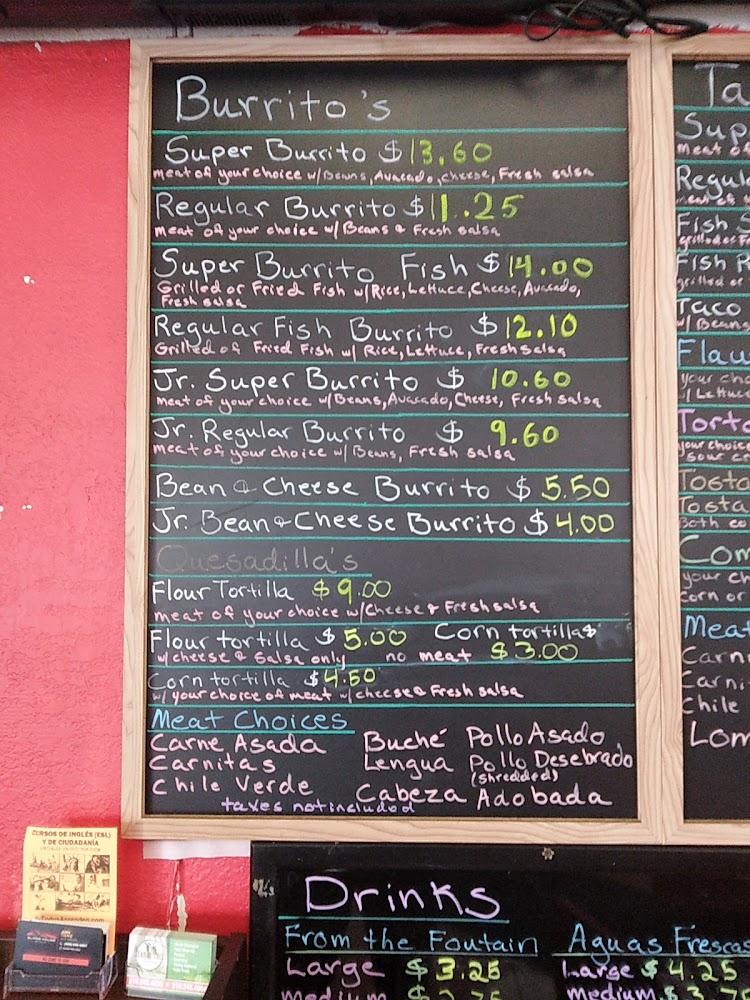 Burrito's
Super Burrito $13.60
meat of your choice w/Beans, Avacado, cheese, Fresh salsa
Regular Burrito $11.25
meat of your choice w/ Beans & Fresh salsa
Super Burrito Fish $14.00
Grilled or Fried Fish w/Rice, Lettuce, Cheese, Avacado,
Fresh salsa
Regular Fish Burrito $12.10
Grilled or Fried Fish w/ Rice, Lettuce, Fresh salsa
Jr. Super Burrito $ 10.60
meat of your choice w/Beans, Avacado, Cheese, Fresh salsa
Jr. Regular Burrito $ 9.60
meat of your choice w/ Beans, Fresh salsa
Bean & Cheese Burrito $ 5.50
Jr. Bean & Cheese Burrito $ 4.00
Quesadilla's
Flour Tortilla $9.00
meat of your choice w/Cheese & Fresh salsa
Flour tortilla $ 5.00 Corn tortillas
w/cheese & Salsa only no meat $3.00
Corn tortilla $4.50
w/ your choice of meat w/cheese & Fresh salsa
Meat Choices
Carne Asada Buché Pollo Asado
Carnitas Lengua Pollo Desebrado
(shredded)
Chile Verde Cabeza Adobada
taxes not included
Ta
Sup
meat of
Regul
Fish S
Fish R
grilled or
Taco
w/ Beans
Flau
your cho
w/ Lettuc
Torta
your choice
sour cr
Tosta
Tosta
Both co
Com
your ch
corn or
Meat
Carn
Carni
Chile
Lom
CURSOS DE INGLÉS (ESL)
Y DE CIUDADANÍA
Drinks
From the Foutain Aguas Frescas
Large $ 3.25 Large $ 4.25
medium $ 2.75 medium $ 3.75